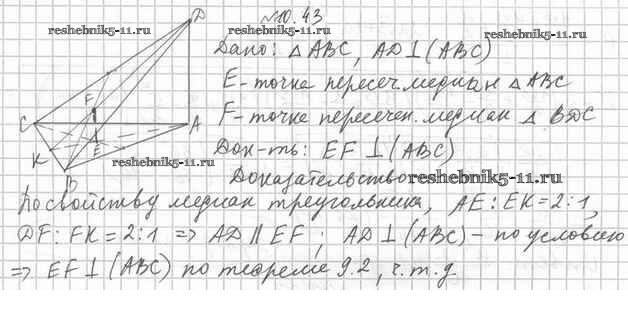 №10.43
D
reshebnik5-11.ru
reshebnik5-11.ru
Дано: △ ABC, AD⊥(ABC)
E-точка пересеч. медиан △ ABC
F
F-точка пересечен. медиан △ BDC
C
A
E
K
B
Док-ть: EF⊥(ABC)
reshebnik5-11.ru
Доказательство
reshebnik5-11.ru
По свойству медиан треугольника, AE:EK=2:1,
DF:FK=2:1 ⇒ AD∥EF; AD⊥(ABC)-по условию
⇒ EF⊥(ABC) по теореме 9.2, ч.т.д.